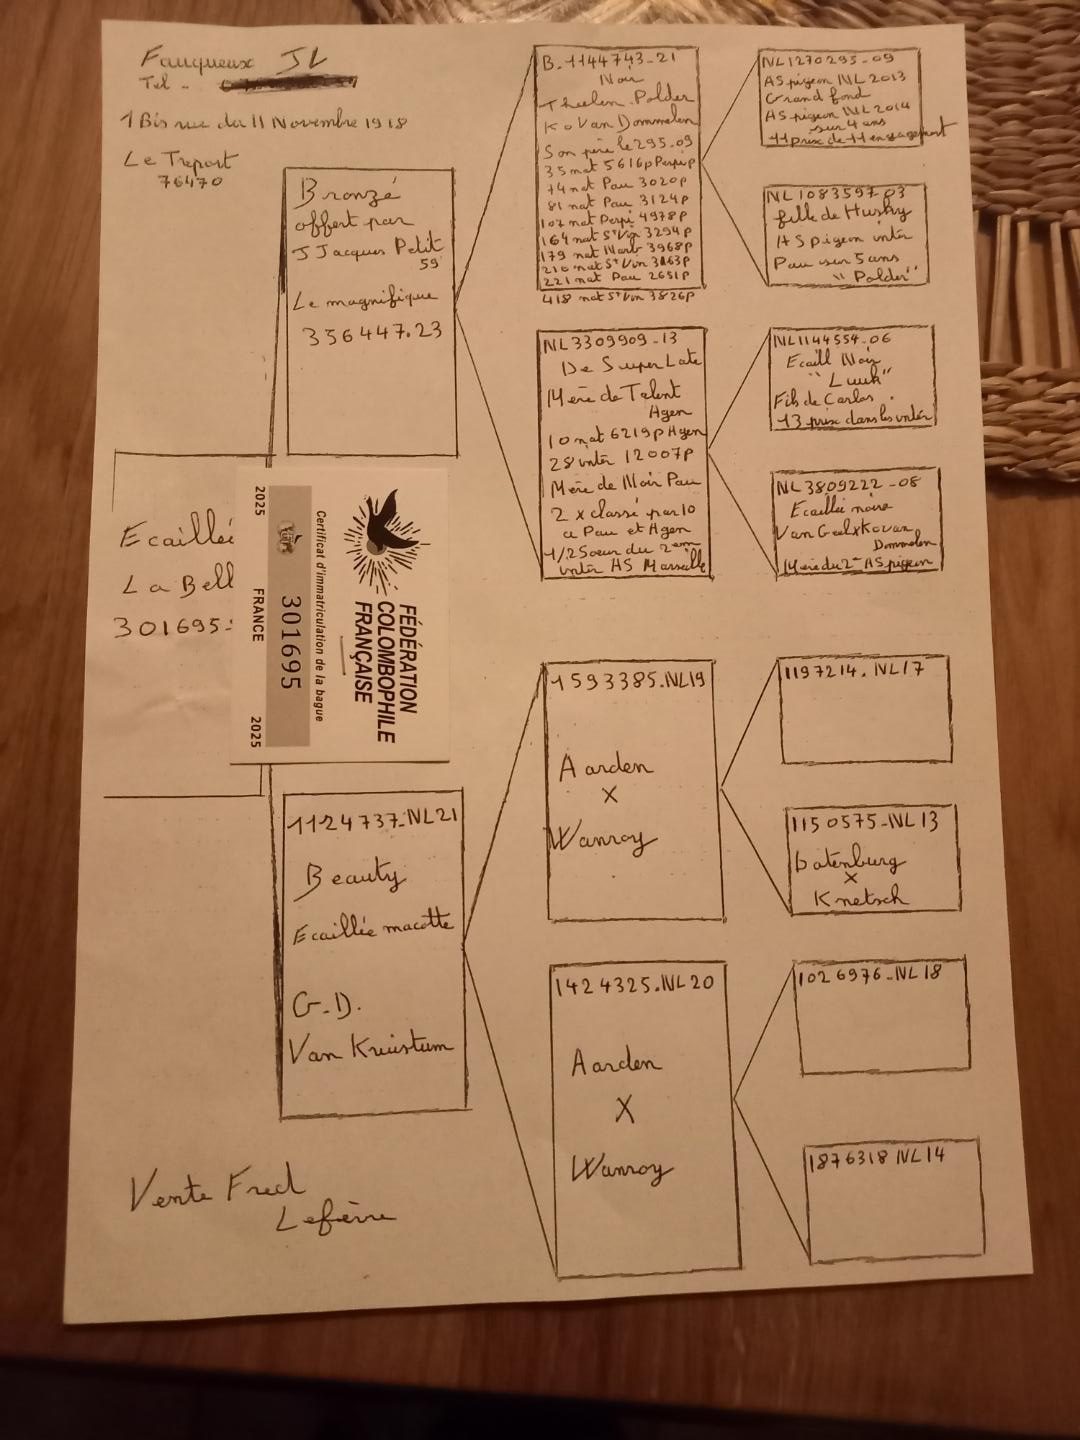 Fauqueux JL
Tel -
1 Bis rue du 11 Novembre 1918
Le Treport
76470
Bronzé
offert par
J Jacques Petit
59
Le magnifique
356447.23
B-1144743-21
Noir
Theelen. Polder
Ko Van Dommelen
Son père le 295.09
35 nat 5616p Perpi
74 nat Pau 3020p
81 nat Pau 3124p
102 nat Perpi 4978p
164 nat St Vin 3294p
179 nat Narb 3968p
210 nat St Vin 3163p
221 nat Pau 2651p
418 nat St Vin 3826p
NL1270295-09
AS pigeon NL 2013
Grand fond
AS pigeon NL 2014
sur 4 ans
11 prix de 11 engagement
NL1083597 03
fille de Husky
AS pigeon inter
Pau sur 5 ans
"Polder"
NL3309909-13
De Super Late
Mère de Talent
Agen
10 nat 6219p Agen
28 inter 12007p
Mère de Noir Pau
2 x classé par 10
a Pau et Agen
1/2 Soeur du 2em
inter AS Marseille
NL1144554-06
Ecaill Noir
"Luuk"
Fils de Carlos
13 prix dans les inter
NL3809222-08
Ecaillée noire
Van Geel x Ko van
Dommelen
Mère du 2e AS pigeon
Ecaillé
La Bell
301695-
2025 FRANCE 2025
301695
Certificat d'immatriculation de la bague
FÉDÉRATION
COLOMBOPHILE
FRANÇAISE
1124737-NL21
Beauty
Ecaillée macotte
G.D.
Van Kruistum
1593385.NL19
Aarden
X
Wanroy
1197214.NL17
1150575-NL13
Batenburg
X
Knetsch
1424325.NL20
Aarden
X
Wanroy
1026976-NL18
1876318 NL14
Vente Fred
Lefèvre